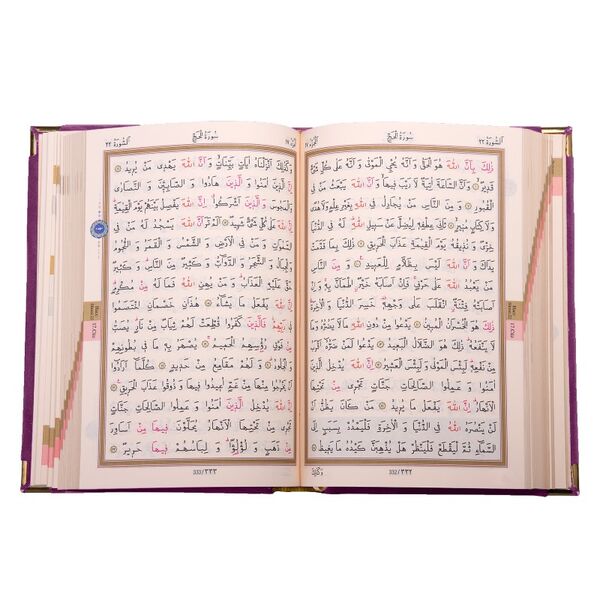 اَلسُّورَةُ ٢٢
سُورَةُ الْحَجِّ
ذٰلِكَ بِاَنَّ اللّٰهَ هُوَ الْحَقُّ وَ اَنَّهُ يُحْيِ الْمَوْتٰى وَ اَنَّهُ عَلٰى كُلِّ شَيْءٍ
قَدِيرٌ وَ اَنَّ السَّاعَةَ اٰتِيَةٌ لَا رَيْبَ فِيهَا وَ اَنَّ اللّٰهَ يَبْعَثُ مَنْ فِي
الْقُبُورِ وَ مِنَ النَّاسِ مَنْ يُجَادِلُ فِي اللّٰهِ بِغَيْرِ عِلْمٍ وَ لَا هُدًى
وَ لَا كِتَابٍ مُنِيرٍ ثَانِيَ عِطْفِهِ لِيُضِلَّ عَنْ سَبِيلِ اللّٰهِ لَهُ فِي الدُّنْيَا
خِزْيٌ وَ نُذِيقُهُ يَوْمَ الْقِيٰمَةِ عَذَابَ الْحَرِيقِ ذٰلِكَ بِمَا قَدَّمَتْ
يَدَاكَ وَ اَنَّ اللّٰهَ لَيْسَ بِظَلَّامٍ لِلْعَبِيدِ وَ مِنَ النَّاسِ
مَنْ يَعْبُدُ اللّٰهَ عَلٰى حَرْفٍ فَاِنْ اَصَابَهُ خَيْرٌ اطْمَاَنَّ بِهِ وَ اِنْ
اَصَابَتْهُ فِتْنَةٌ انْقَلَبَ عَلٰى وَجْهِهِ خَسِرَ الدُّنْيَا وَ الْاٰخِرَةَ
ذٰلِكَ هُوَ الْخُسْرَانُ الْمُبِينُ يَدْعُوا مِنْ دُونِ اللّٰهِ مَا لَا يَضُرُّهُ وَ مَا
لَا يَنْفَعُهُ ذٰلِكَ هُوَ الضَّلَالُ الْبَعِيدُ يَدْعُوا لَمَنْ ضَرُّهُ اَقْرَبُ
مِنْ نَفْعِهِ لَبِئْسَ الْمَوْلٰى وَ لَبِئْسَ الْعَشِيرُ اِنَّ اللّٰهَ يُدْخِلُ
الَّذِينَ اٰمَنُوا وَ عَمِلُوا الصَّالِحَاتِ جَنَّاتٍ تَجْرِي مِنْ تَحْتِهَا
الْاَنْهَارُ اِنَّ اللّٰهَ يَفْعَلُ مَا يُرِيدُ مَنْ كَانَ يَظُنُّ اَنْ
لَنْ يَنْصُرَهُ اللّٰهُ فِي الدُّنْيَا وَ الْاٰخِرَةِ فَلْيَمْدُدْ بِسَبَبٍ اِلَى
السَّمَاءِ ثُمَّ لْيَقْطَعْ فَلْيَنْظُرْ هَلْ يُذْهِبَنَّ كَيْدُهُ مَا يَغِيظُ
332/٣٣٢
وَ كَذٰلِكَ
سُورَةُ الْحَجِّ
اَلسُّورَةُ ٢٢
وَ كَذٰلِكَ اَنْزَلْنَاهُ اٰيَاتٍ بَيِّنَاتٍ وَ اَنَّ اللّٰهَ يَهْدِي مَنْ يُرِيدُ
اِنَّ الَّذِينَ اٰمَنُوا وَ الَّذِينَ هَادُوا وَ الصَّابِئِينَ وَ النَّصَارٰى
وَ الْمَجُوسَ وَ الَّذِينَ اَشْرَكُوا اِنَّ اللّٰهَ يَفْصِلُ بَيْنَهُمْ يَوْمَ الْقِيٰمَةِ
اِنَّ اللّٰهَ عَلٰى كُلِّ شَيْءٍ شَهِيدٌ اَلَمْ تَرَ اَنَّ اللّٰهَ يَسْجُدُ لَهُ مَنْ فِي
السَّمٰوَاتِ وَ مَنْ فِي الْاَرْضِ وَ الشَّمْسُ وَ الْقَمَرُ وَ النُّجُومُ
وَ الْجِبَالُ وَ الشَّجَرُ وَ الدَّوَابُّ وَ كَثِيرٌ مِنَ النَّاسِ وَ كَثِيرٌ
حَقَّ عَلَيْهِ الْعَذَابُ وَ مَنْ يُهِنِ اللّٰهُ فَمَا لَهُ مِنْ مُكْرِمٍ
اِنَّ اللّٰهَ يَفْعَلُ مَا يَشَاءُ هٰذَانِ خَصْمَانِ اخْتَصَمُوا
فِي رَبِّهِمْ فَالَّذِينَ كَفَرُوا قُطِّعَتْ لَهُمْ ثِيَابٌ مِنْ نَارٍ يُصَبُّ
مِنْ فَوْقِ رُؤُسِهِمُ الْحَمِيمُ يُصْهَرُ بِهِ مَا فِي بُطُونِهِمْ
وَ الْجُلُودُ وَ لَهُمْ مَقَامِعُ مِنْ حَدِيدٍ كُلَّمَا اَرَادُوا
اَنْ يَخْرُجُوا مِنْهَا مِنْ غَمٍّ اُعِيدُوا فِيهَا وَ ذُوقُوا عَذَابَ الْحَرِيقِ
اِنَّ اللّٰهَ يُدْخِلُ الَّذِينَ اٰمَنُوا وَ عَمِلُوا الصَّالِحَاتِ جَنَّاتٍ
تَجْرِي مِنْ تَحْتِهَا الْاَنْهَارُ يُحَلَّوْنَ فِيهَا مِنْ اَسَاوِرَ
مِنْ ذَهَبٍ وَ لُؤْلُؤًا وَ لِبَاسُهُمْ فِيهَا حَرِيرٌ
333/٣٣٣